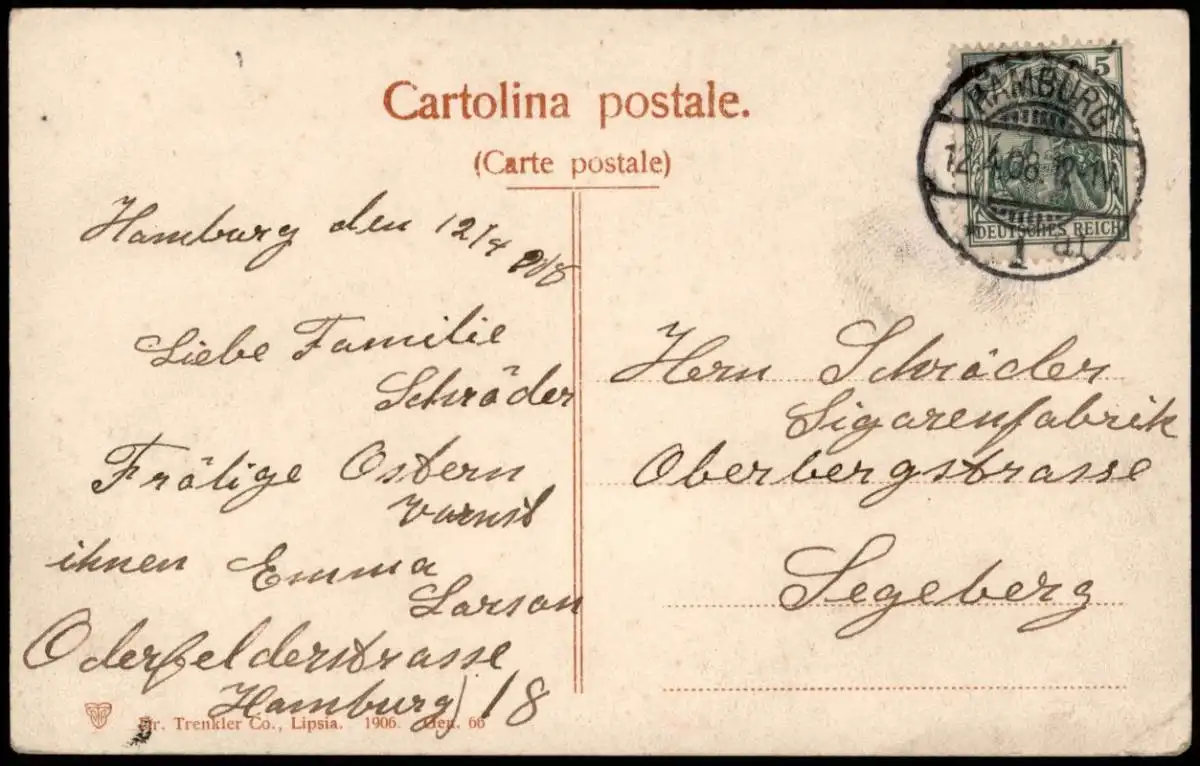 Cartolina postale.
(Carte postale)
Hamburg den 12/4 908
Liebe Familie
Schröder
Frölige Ostern
ihnen Emma
Larson
Oderfelderstrasse
Hamburg 18
Dr. Trenkler Co., Lipsia. 1906. Gen. 66
5
HAMBURG
12.4.08. 12-1N
1 d1
DEUTSCHES REICH
Hern Schröder
Sigarenfabrik
Oberbergstrasse
Segeberg